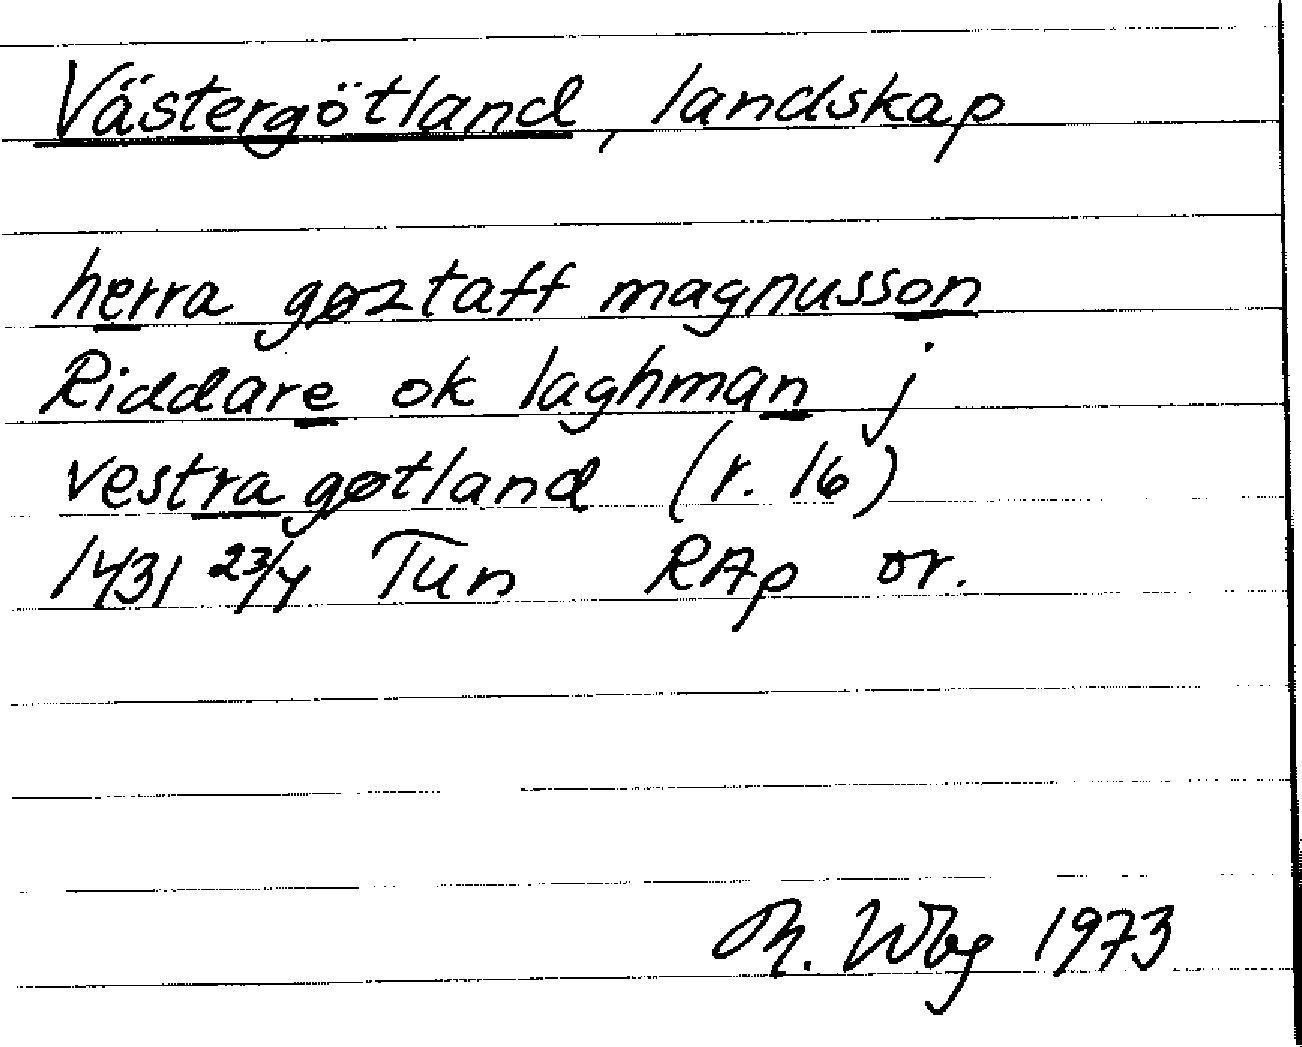 Västergötland, landskap
herra gøztaff magnusson
Riddare ok laghman j
vestra gøtland (r. 16)
1431 23/4 Tun RAp or.
M. Wbg 1973